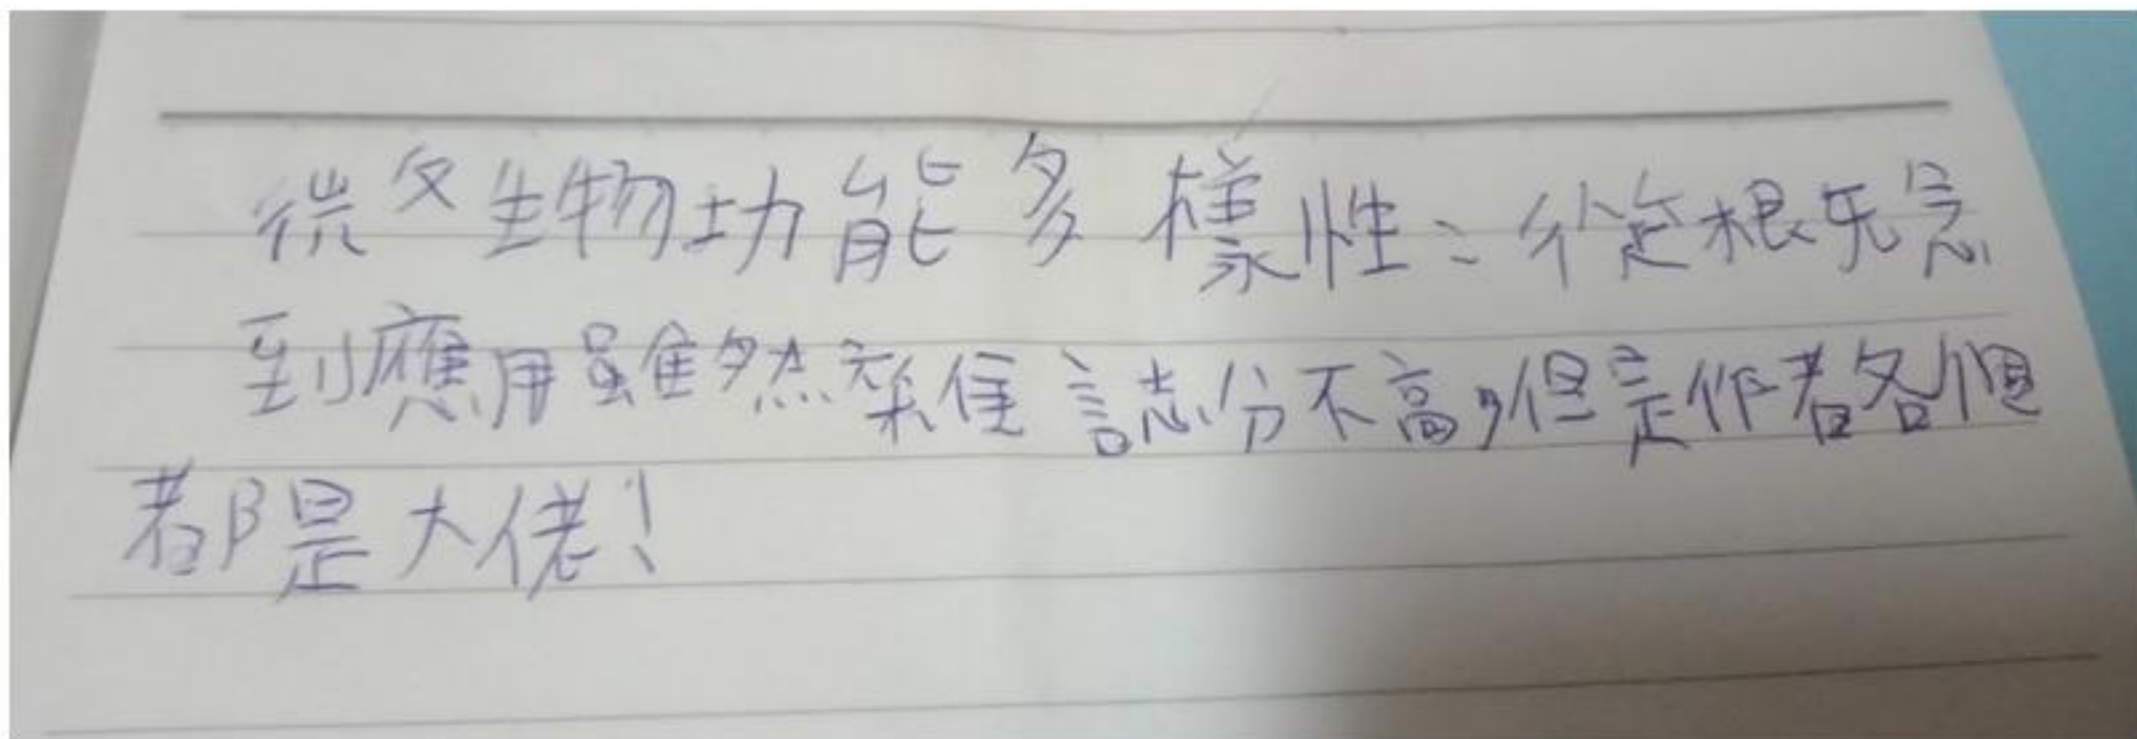 微生物功能多樣性:從根瘤
到應用雖然雜誌分不高,但是作者各個
都是大佬!